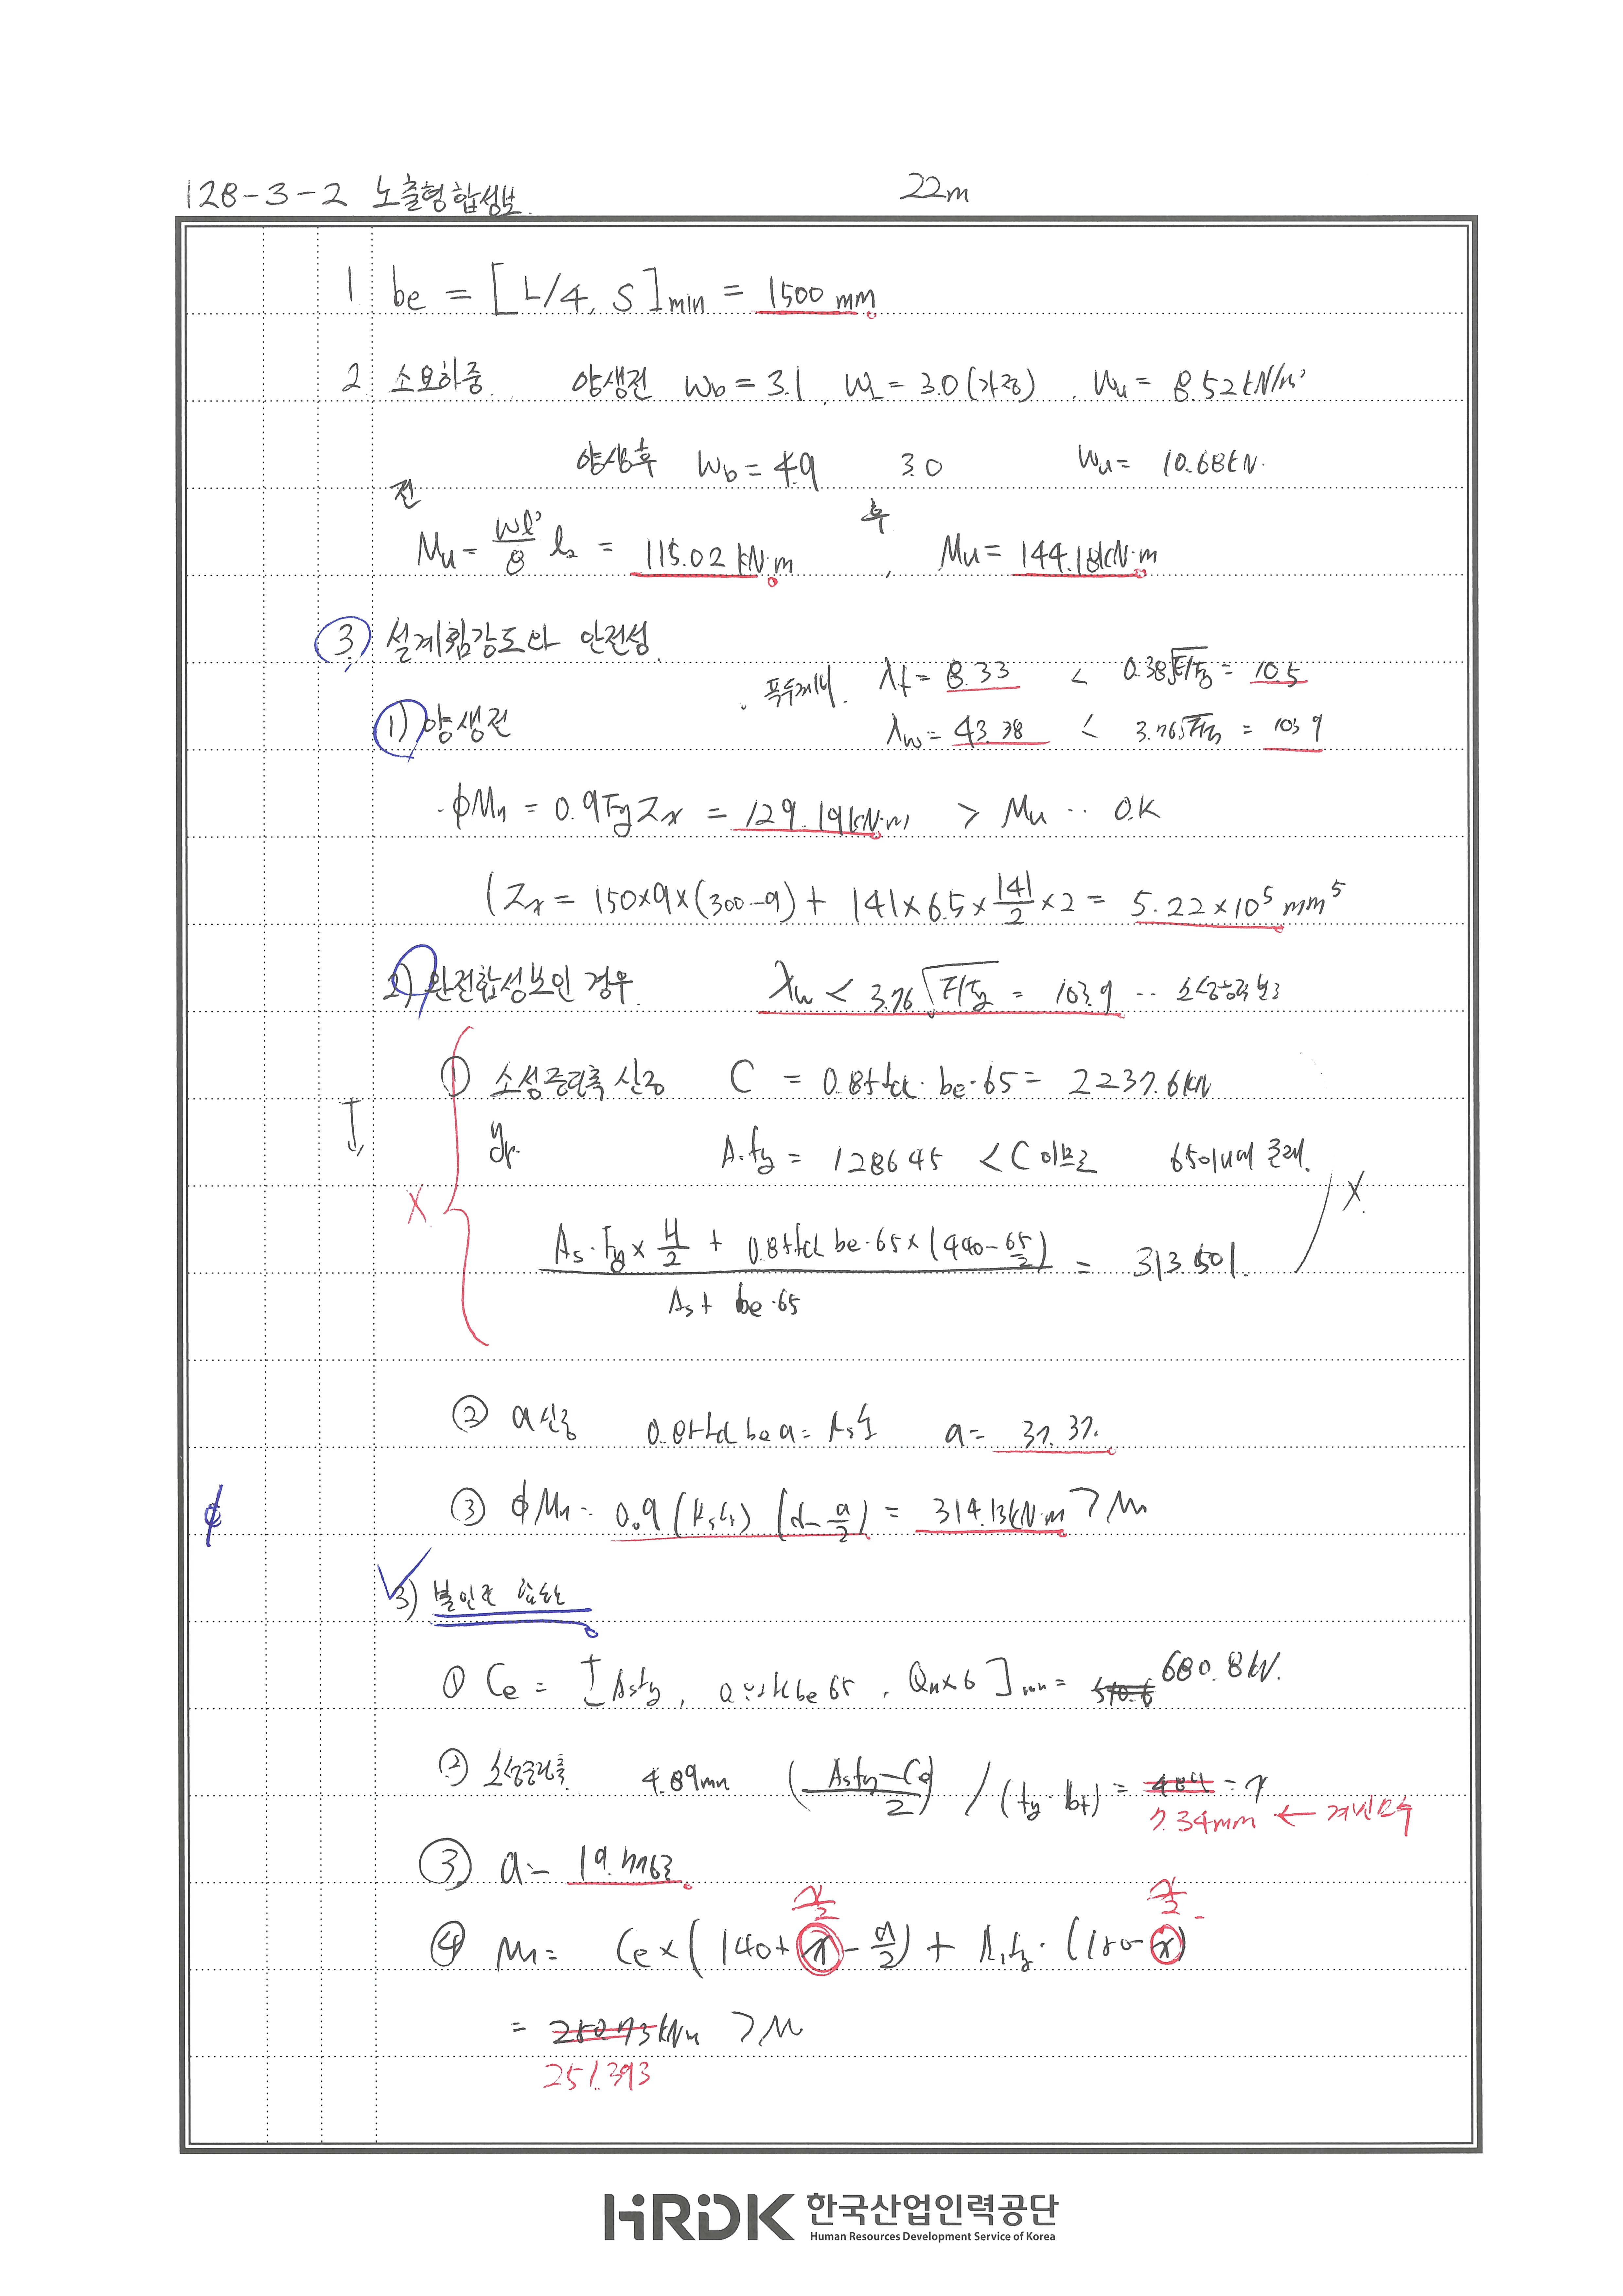 128-3-2 노출형합성보. 22m
1 be = [L/4, S]min = 1500 mm
2. 소요하중. 양생전 Wb = 3.1, WL = 3.0 (가정), Wu = 8.52kN/m²
양생후 Wb = 4.9 3.0 Wu = 10.68kN.
전 후
Mu = wl²/8 l₂ = 115.02 kN·m , Mu = 144.18kN·m
3. 설계휨강도와 안전성.
. 폭두께비. λf = 8.33 < 0.38√E/Fy = 10.5
1) 양생전 λw = 43.38 < 3.76√E/Fy = 103.9
·φMn = 0.9FyZx = 129.19kN·m > Mu ·· O.K
(Zx = 150×9×(300-9) + 141×6.5×141/2×2 = 5.22×10⁵ mm⁵
2) 완전합성보인 경우. λw < 3.76√E/Fy = 103.9 ·· 소성능력 보
① 소성중립축 산정 C = 0.85fck·be·65 = 2237.6kN
As·fy = 128645 < C 이므로 65이내에 존재.
As·Fy×H/2 + 0.85fck be·65×(440-65/2) / As + be·65 = 313.501. X
X
② a 산정 0.85fck be a = Asfy a = 37.37.
φ ③ φMn = 0.9(Asfy)(d-a/2) = 314.13kN·m > Mu
3)
① Ce = [Asfy, 0.85fck be 65, Qn×6]min = 570.6 680.8kN.
② 소성중립축. 4.89mm (Asfy-Ce/2) / (fy·bf) = 4.89 = x
7.34mm ←
③ a =
x/2 x/2
④ Mn = Ce×(140+x-a/2) + As fy·(150-x)
= kNm > Mu
251.393
HRDK 한국산업인력공단
Human Resources Development Service of Korea